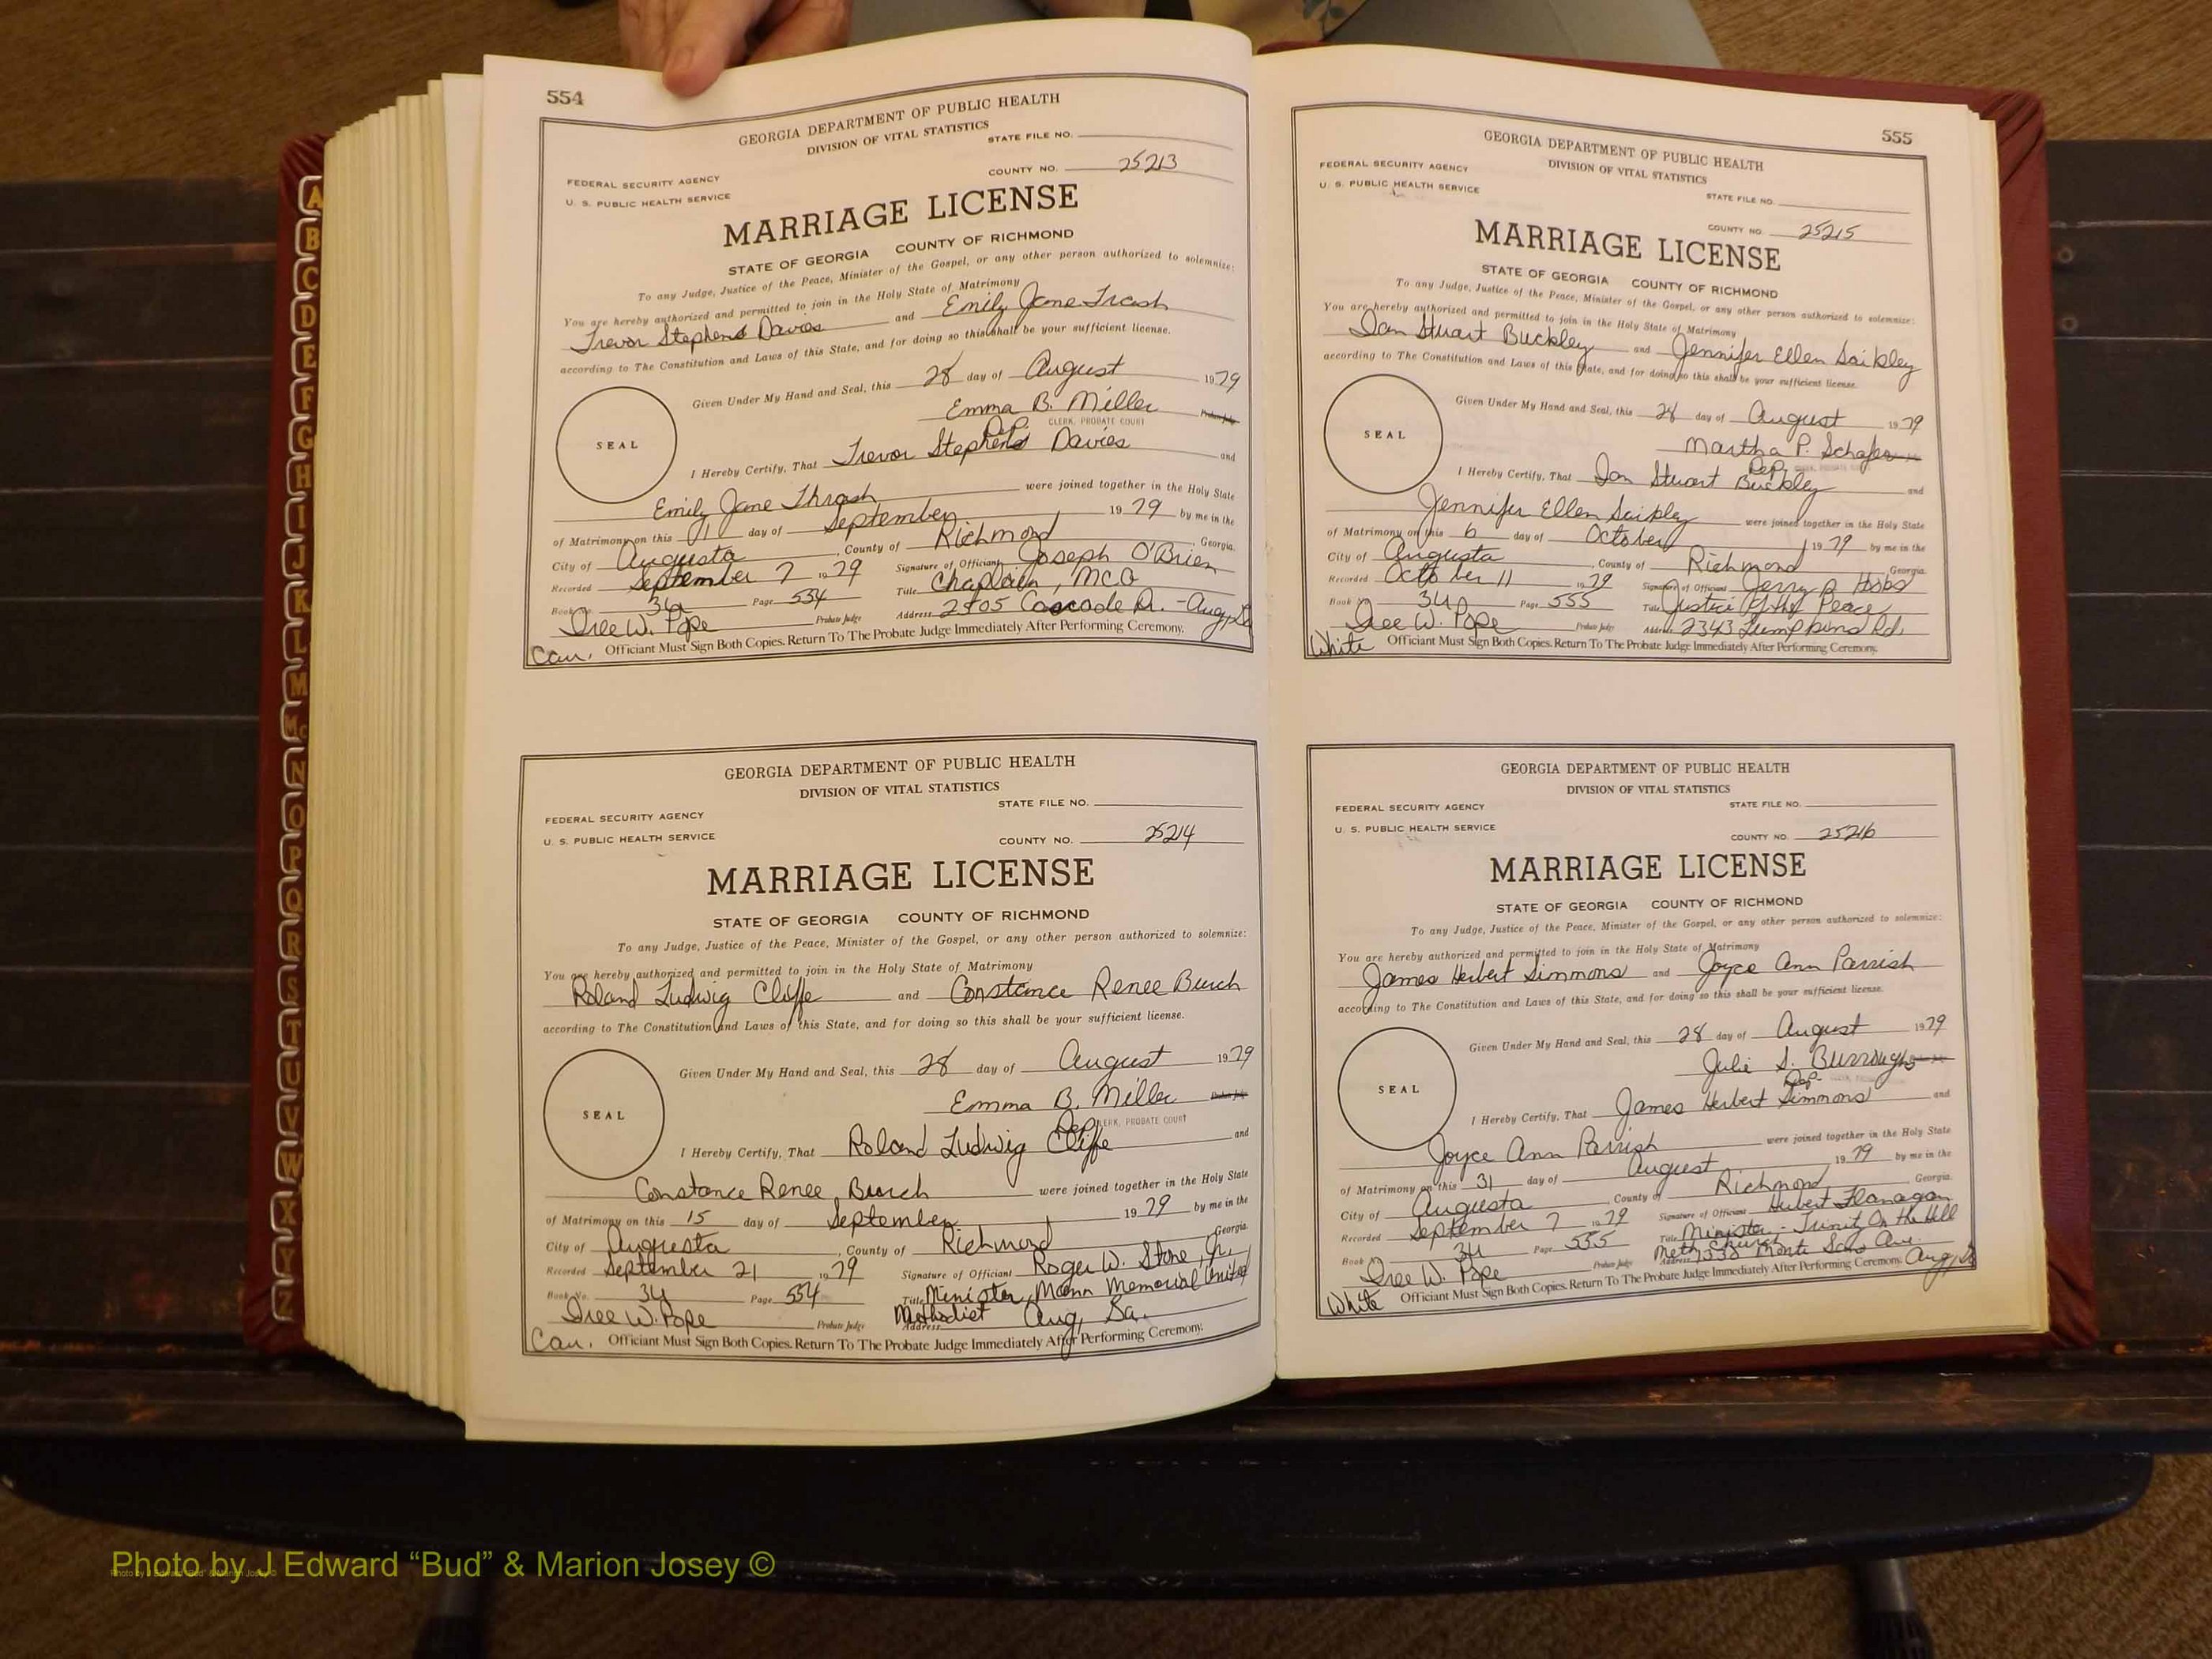 554
GEORGIA DEPARTMENT OF PUBLIC HEALTH
DIVISION OF VITAL STATISTICS
STATE FILE NO.
COUNTY NO. 25213
FEDERAL SECURITY AGENCY
U. S. PUBLIC HEALTH SERVICE
MARRIAGE LICENSE
STATE OF GEORGIA COUNTY OF RICHMOND
To any Judge, Justice of the Peace, Minister of the Gospel, or any other person authorized to solemnize:
You are hereby authorized and permitted to join in the Holy State of Matrimony
Trevor Stephens Davies and Emily Jane Trash
according to The Constitution and Laws of this State, and for doing so this shall be your sufficient license.
Given Under My Hand and Seal, this 28 day of August 1979
Emma B. Miller
Dep. CLERK, PROBATE COURT
SEAL
I Hereby Certify, That Trevor Stephens Davies and
Emily Jane Thrash were joined together in the Holy State
of Matrimony on this 01 day of September 1979 by me in the
City of Augusta, County of Richmond, Georgia.
Recorded September 7 1979 Signature of Officiant Joseph O'Brien
Book No. Page 554 Title Chaplain, MCO
Dree W. Pope Probate Judge Address 2505 Cascade Dr. - Aug, Ga
Cau. Officiant Must Sign Both Copies. Return To The Probate Judge Immediately After Performing Ceremony.
GEORGIA DEPARTMENT OF PUBLIC HEALTH
DIVISION OF VITAL STATISTICS
STATE FILE NO.
FEDERAL SECURITY AGENCY
U. S. PUBLIC HEALTH SERVICE
COUNTY NO. 25214
MARRIAGE LICENSE
STATE OF GEORGIA COUNTY OF RICHMOND
To any Judge, Justice of the Peace, Minister of the Gospel, or any other person authorized to solemnize:
You are hereby authorized and permitted to join in the Holy State of Matrimony
Roland Ludwig Cliffe and Constance Renee Burch
according to The Constitution and Laws of this State, and for doing so this shall be your sufficient license.
Given Under My Hand and Seal, this 28 day of August 1979
Emma B. Miller
Dep. CLERK, PROBATE COURT
SEAL
I Hereby Certify, That Roland Ludwig Cliffe and
Constance Renee Burch were joined together in the Holy State
of Matrimony on this 15 day of September 1979 by me in the
City of Augusta, County of Richmond Georgia.
Recorded September 21 1979 Signature of Officiant Roger W. Stone, Jr.
Book No. 34 Page 554 Title Minister, Mann Memorial United
Dree W. Pope Probate Judge Methodist Address Aug, Ga.
Cau. Officiant Must Sign Both Copies. Return To The Probate Judge Immediately After Performing Ceremony.
555
GEORGIA DEPARTMENT OF PUBLIC HEALTH
DIVISION OF VITAL STATISTICS
FEDERAL SECURITY AGENCY
U. S. PUBLIC HEALTH SERVICE
STATE FILE NO.
COUNTY NO. 25215
MARRIAGE LICENSE
STATE OF GEORGIA COUNTY OF RICHMOND
To any Judge, Justice of the Peace, Minister of the Gospel, or any other person authorized to solemnize:
You are hereby authorized and permitted to join in the Holy State of Matrimony
Ian Stuart Buckley and Jennifer Ellen Saikley
according to The Constitution and Laws of this State, and for doing so this shall be your sufficient license.
Given Under My Hand and Seal, this 28 day of August 1979
Martha P. Schafer
Dep. CLERK, PROBATE COURT
SEAL
I Hereby Certify, That Ian Stuart Buckley and
Jennifer Ellen Saikley were joined together in the Holy State
of Matrimony on this 6 day of October 1979 by me in the
City of Augusta, County of Richmond Georgia.
Recorded October 11 1979 Signature of Officiant Jerry R Hobbs
Book No. 34 Page 555 Title Justice of the Peace
Dree W. Pope Probate Judge Address 2343 Lumpkins Rd.
White Officiant Must Sign Both Copies. Return To The Probate Judge Immediately After Performing Ceremony.
GEORGIA DEPARTMENT OF PUBLIC HEALTH
DIVISION OF VITAL STATISTICS
FEDERAL SECURITY AGENCY STATE FILE NO.
U. S. PUBLIC HEALTH SERVICE
COUNTY NO. 25216
MARRIAGE LICENSE
STATE OF GEORGIA COUNTY OF RICHMOND
To any Judge, Justice of the Peace, Minister of the Gospel, or any other person authorized to solemnize:
You are hereby authorized and permitted to join in the Holy State of Matrimony
James Herbert Simmons and Joyce Ann Parrish
according to The Constitution and Laws of this State, and for doing so this shall be your sufficient license.
Given Under My Hand and Seal, this 28 day of August 1979
Julie S. Burroughs
Dep. CLERK, PROBATE COURT
SEAL
I Hereby Certify, That James Herbert Simmons and
Joyce Ann Parrish were joined together in the Holy State
of Matrimony on this 31 day of August 1979 by me in the
City of Augusta County of Richmond, Georgia.
Recorded September 7 1979 Signature of Officiant Hubert Flanagan
Book No. 34 Page 555 Title Minister - Trinity On the Hill
Meth Church
Dree W. Pope Probate Judge Address 1330 Monte Sano Ave. Aug, Ga
White Officiant Must Sign Both Copies. Return To The Probate Judge Immediately After Performing Ceremony.
A
B
C
D
E
F
G
H
I
J
K
L
M
Mc
N
O
P
Q
R
S
T
U
V
W
X
Y
Z
Photo by J Edward “Bud” & Marion Josey ©
Photo by J Edward “Bud” & Marion Josey ©